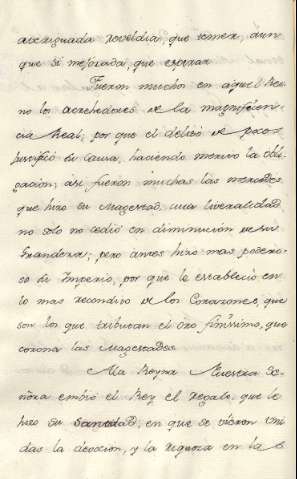 averiguada rreveldia, que temer, aun
que si mejorada, que esperar
Fueron mucho en aquel Rey-
no los acrehedores de la magnificen-
cia Real, por que el delicio de pocos
justificò su causa, haciendo merito la obli
gacion; asi fueron muchas las mercedes
que hizo su Magestad, cuia liveralidad
no solo no cediò en diminucion de su
Grandeza; pero antes hizo mas podero-
so su Imperio, por que le estableciò en
lo mas recondito de los Corazones, que
son los que tributan el oro finissimo, que
corona las Magestades
A la Reyna Nuestra Se-
ñora embiò el Rey el regalo, que le
hizo su Santidad, en que se vieron Uni
das la devocion, y la riqueza en la s